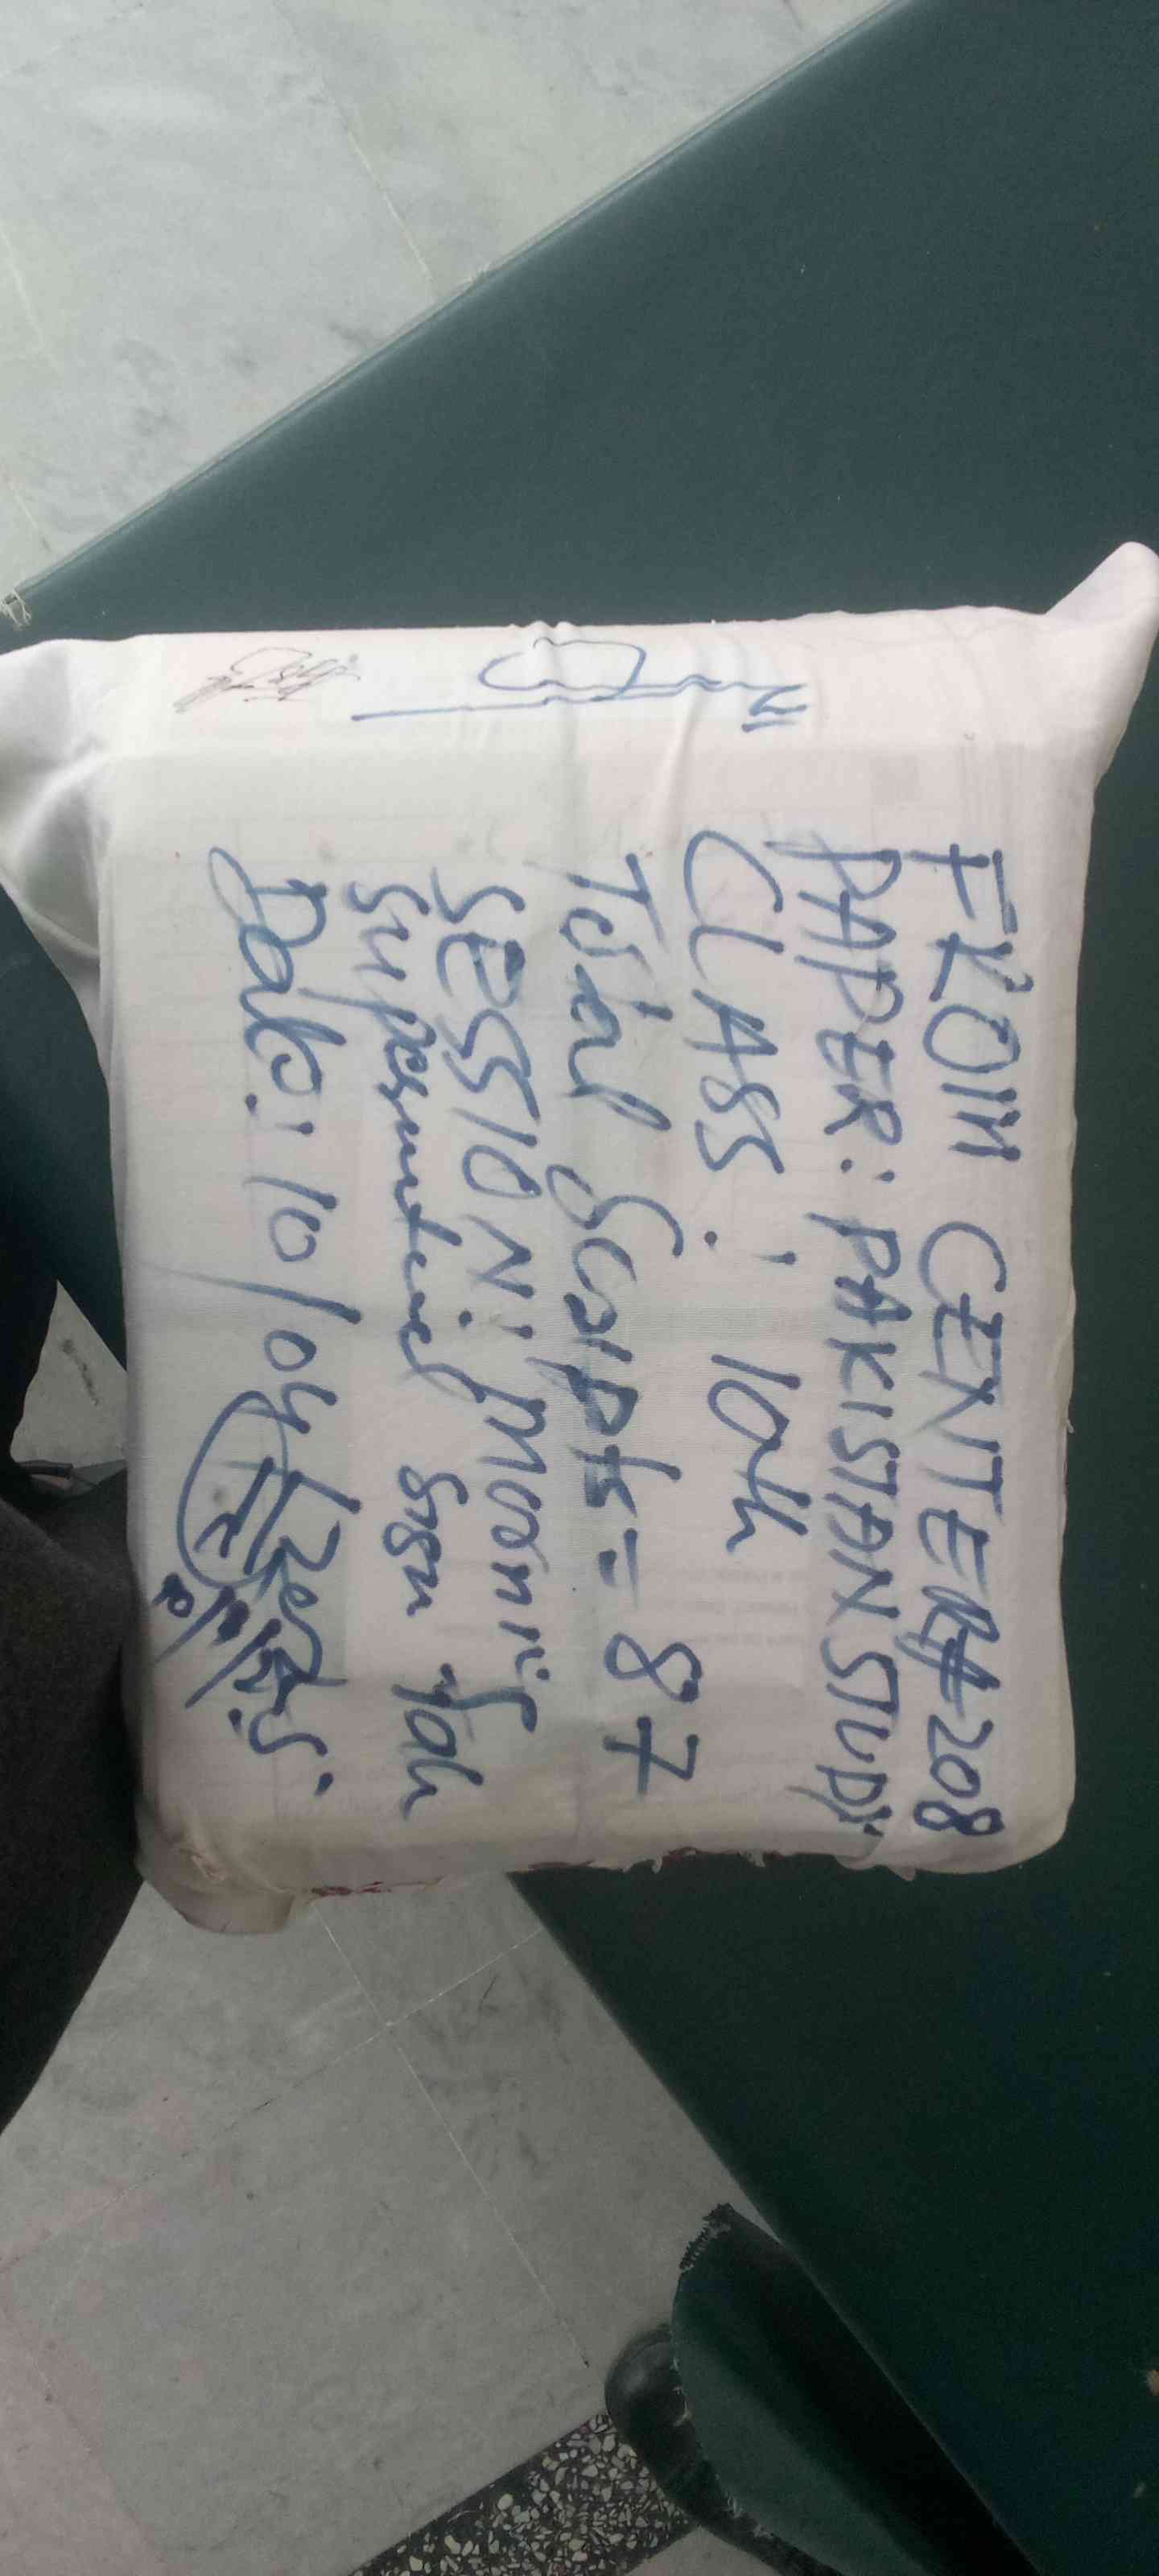 FROM CENTER#208
PAPER: PAKISTAN STUDY
CLASS: 10th
Total Scripts = 87
SESSION: Morning
Superintendent Sign
Date: 10/04/2025